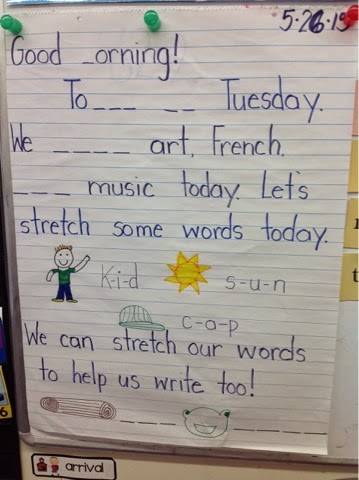 5-26-15
Good _orning!
To___ __ Tuesday.
We ____ art, French,
___ music today. Let's
stretch some words today.
k-i-d s-u-n
c-a-p
We can stretch our words
to help us write too!
___ ____
arrival
6